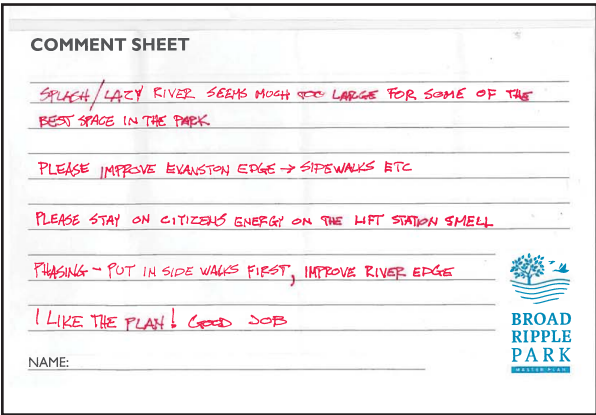 COMMENT SHEET
SPLASH/LAZY RIVER SEEMS MUCH TOO LARGE FOR SOME OF THE
BEST SPACE IN THE PARK
PLEASE IMPROVE EVANSTON EDGE → SIDEWALKS ETC
PLEASE STAY ON CITIZENS ENERGY ON THE LIFT STATION SMELL
PHASING - PUT IN SIDE WALKS FIRST, IMPROVE RIVER EDGE
I LIKE THE PLAN! GOOD JOB
NAME:
BROAD
RIPPLE
PARK
MASTER PLAN